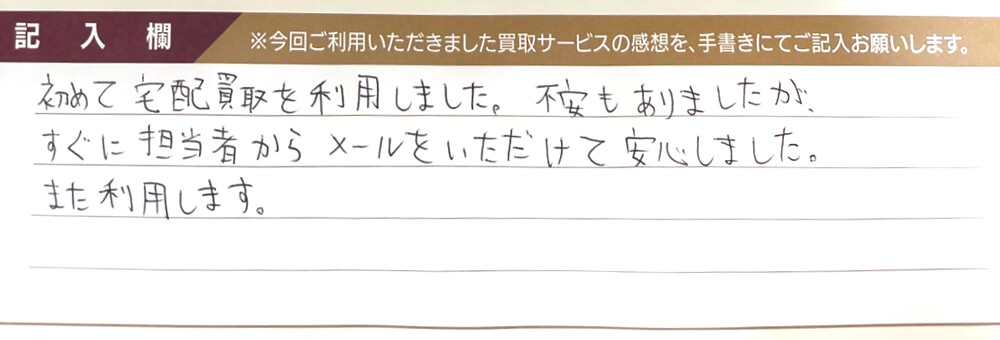 記入欄 ※今回ご利用いただきました買取サービスの感想を、手書きにてご記入お願いします。
初めて宅配買取を利用しました。不安もありましたが、
すぐに担当者からメールをいただけて安心しました。
また利用します。